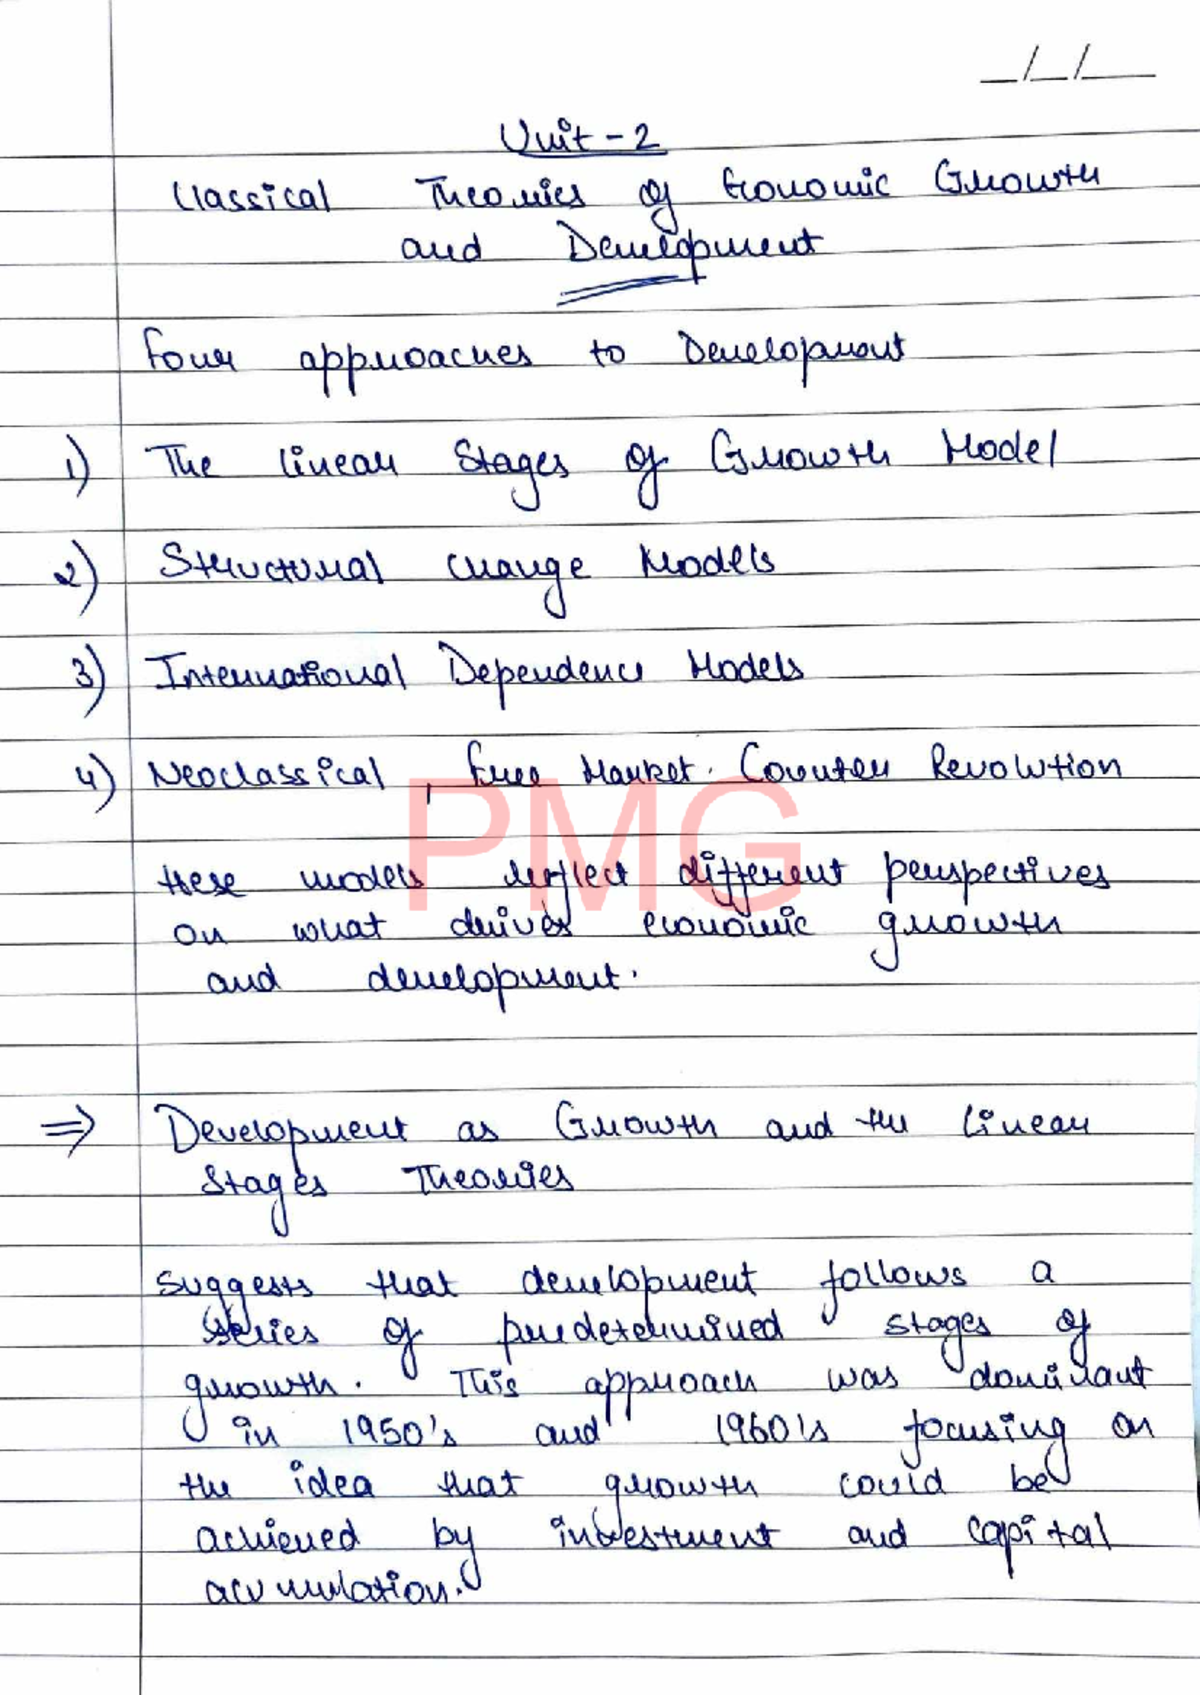 _/_/__
Unit - 2
Classical Theories of Economic Growth
and Development
Four approaches to Development
1) The Linear Stages of Growth Model
2) Structural Change Models
3) International Dependence Models
4) Neoclassical, Free Market Counter Revolution
PMG
these models reflect different perspectives
on what drives economic growth
and development.
⇒ Development as Growth and the Linear
Stages Theories
suggests that development follows a
series of predetermined stages of
growth. This approach was dominant
in 1950's and 1960's focusing on
the idea that growth could be
achieved by investment and capital
accumulation.